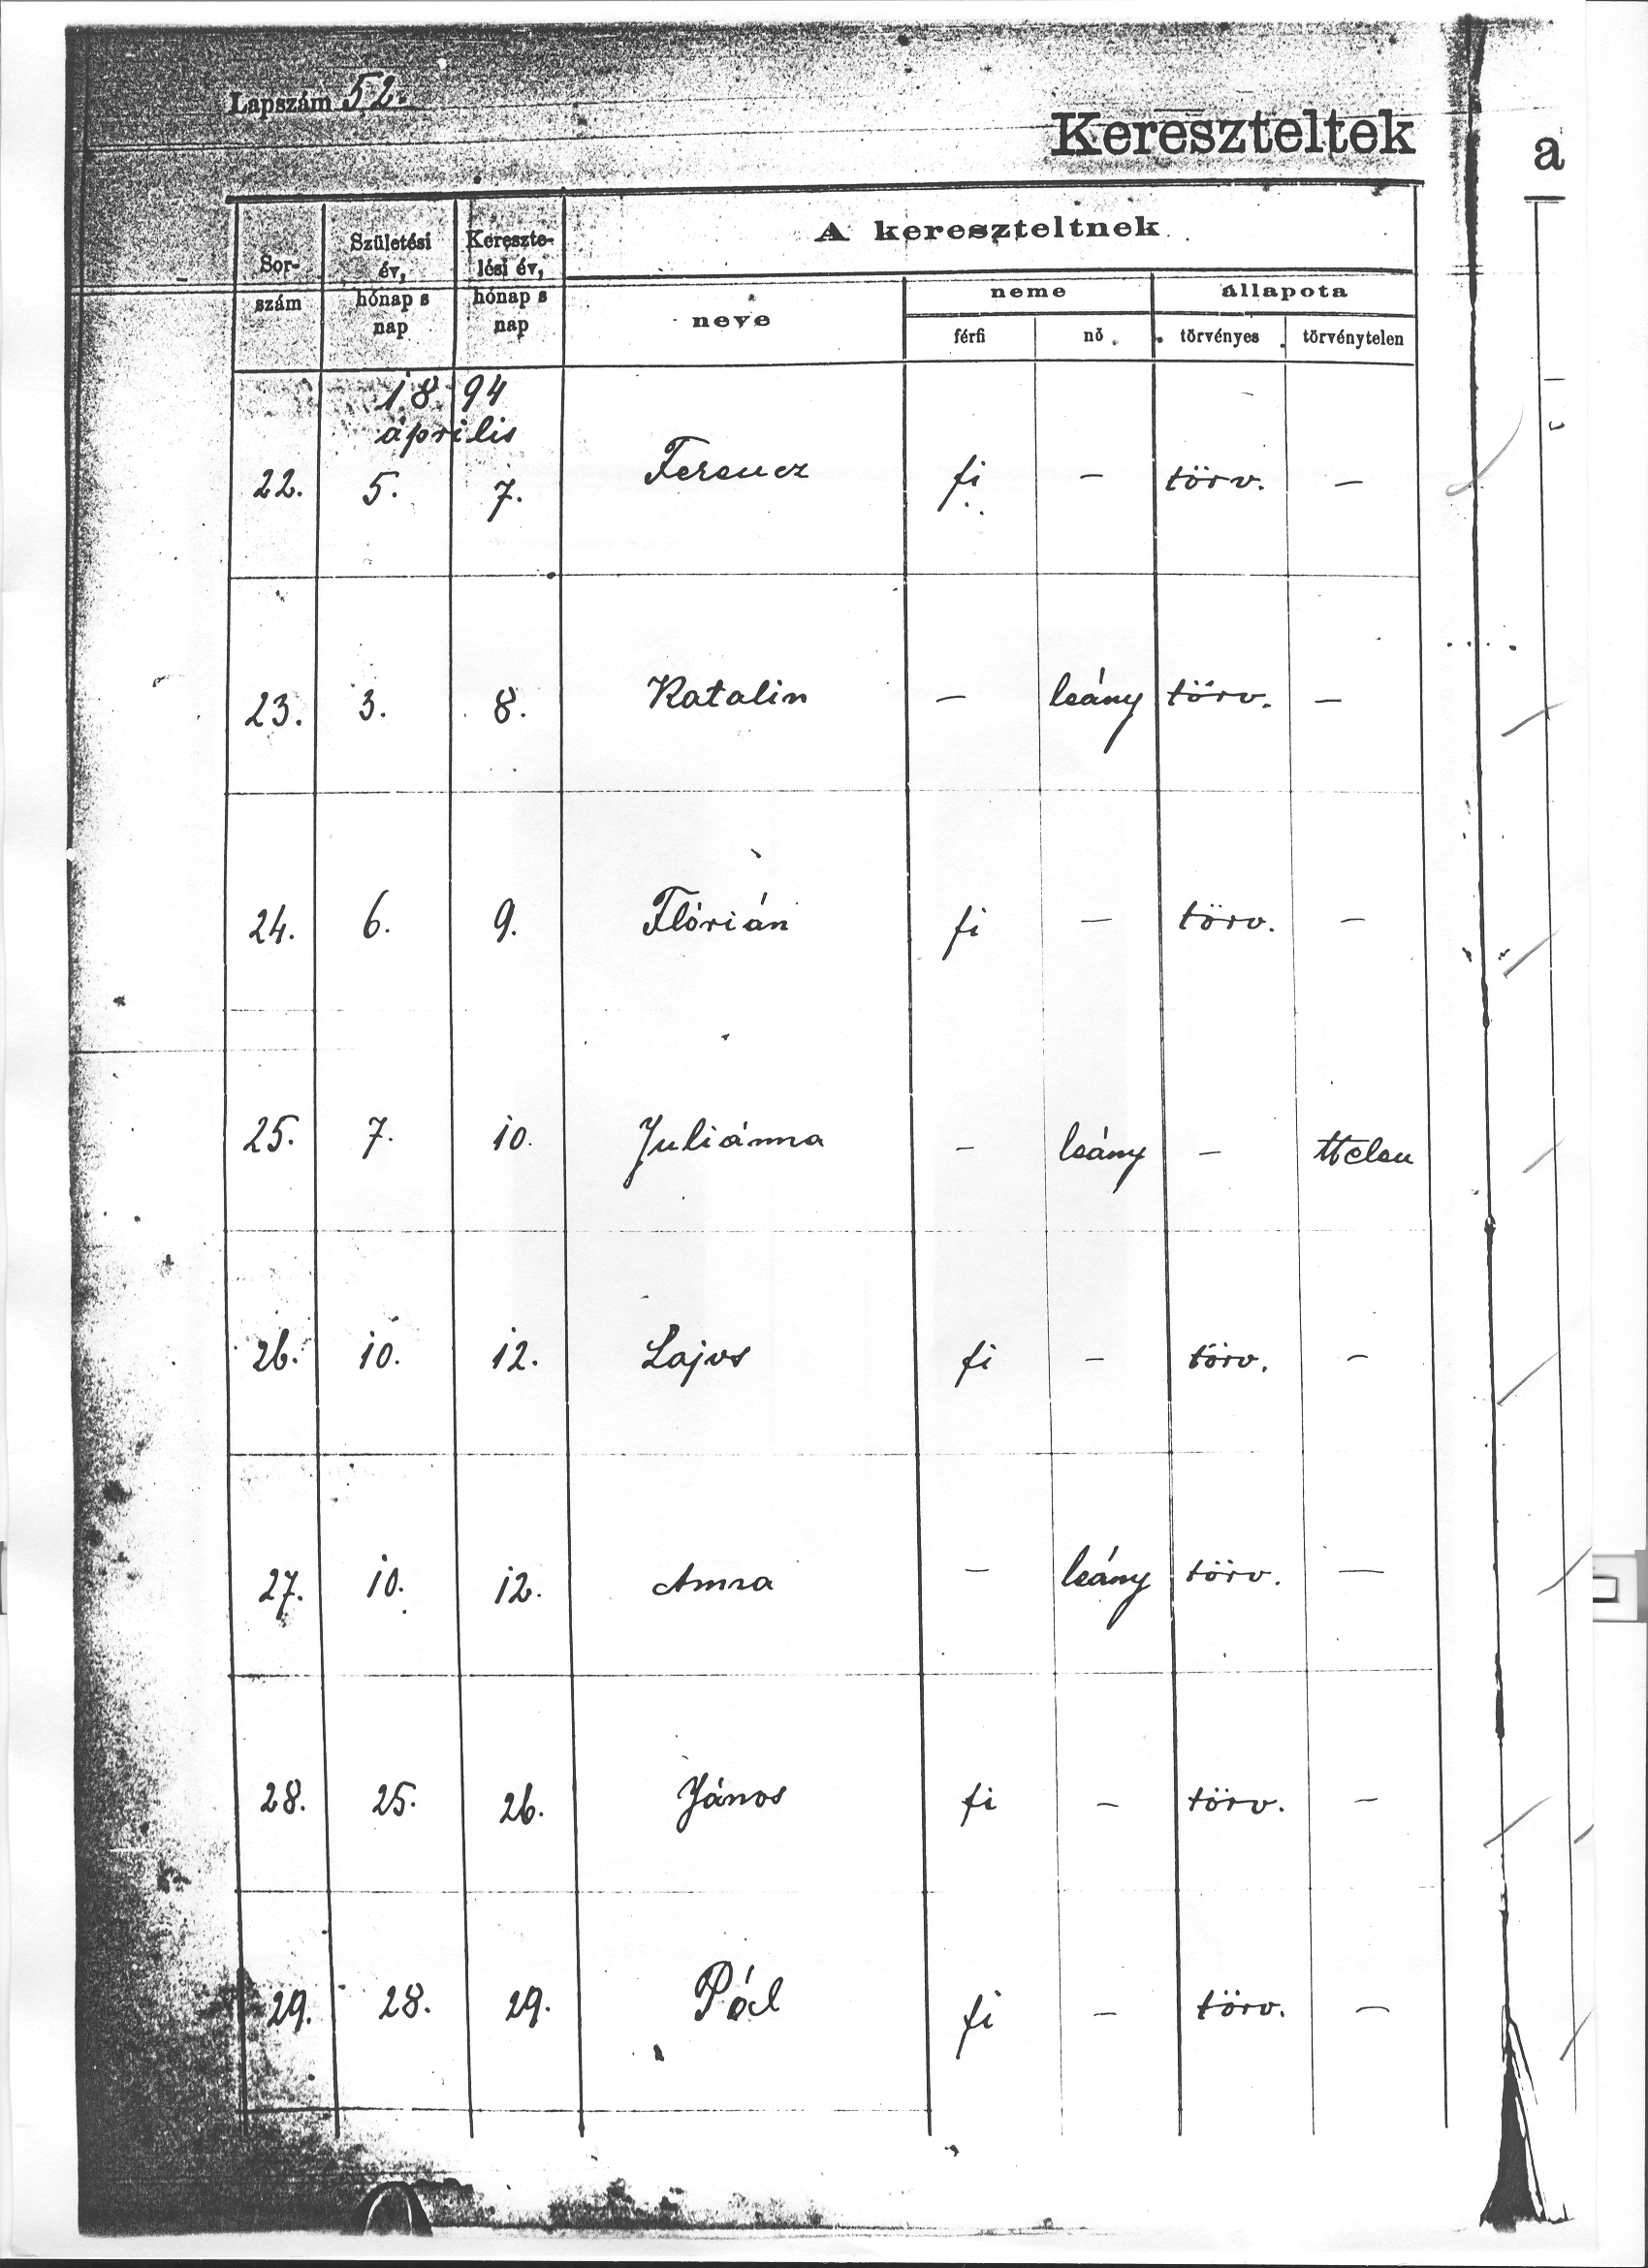 Lapszám 52.
Kereszteltek
a
Sor-
szám
Születési
év,
hónap s
nap
Kereszte-
lési év,
hónap s
nap
A kereszteltnek
neve
neme
állapota
férfi
nő
törvényes
törvénytelen
1894
április
22. 5. 7. Ferencz fi — törv. —
23. 3. 8. Katalin — leány törv. —
24. 6. 9. Flórián fi — törv. —
25. 7. 10. Juliánna — leány — ttelen
26. 10. 12. Lajos fi — törv. —
27. 10. 12. Anna — leány törv. —
28. 25. 26. János fi — törv. —
29. 28. 29. Pál fi — törv. —